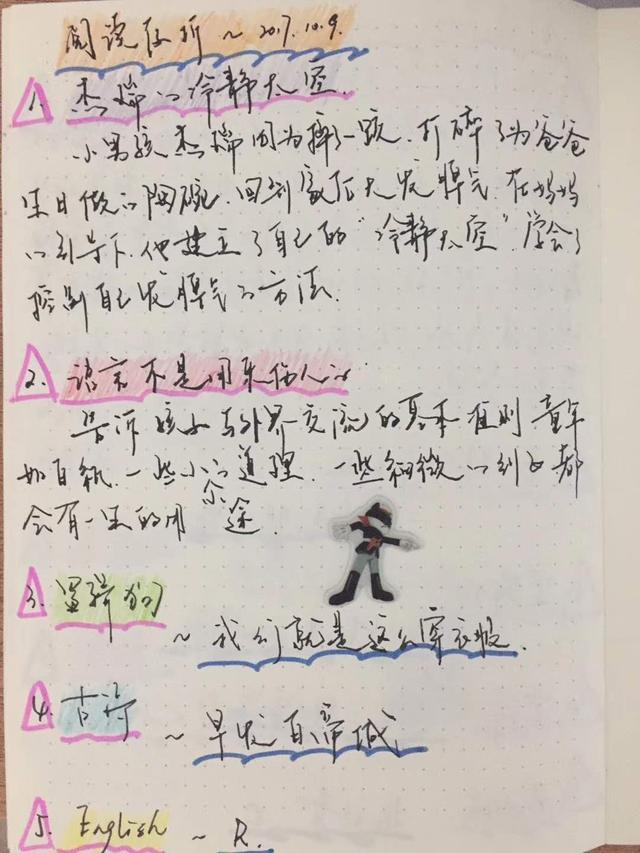 阅读分析 ~ 2017.10.9.
1. 杰瑞的冷静太空.
小男孩杰瑞因为摔了一跤.打碎了为爸爸
生日做的陶碗.回到家后大发脾气.在妈妈
的引导下.他建立了自己的“冷静太空”.学会了
控制自己发脾气的方法.
2. 语言不是用来伤人的
告诉孩子与外界交流的基本准则 童年
如白纸.一些小的道理.一些细微的列子都
会有一生的用途.
3. 蓝骑狗
~ 我们就是这么穿衣服.
4. 古诗 ~ 早发白帝城
5. English ~ R.